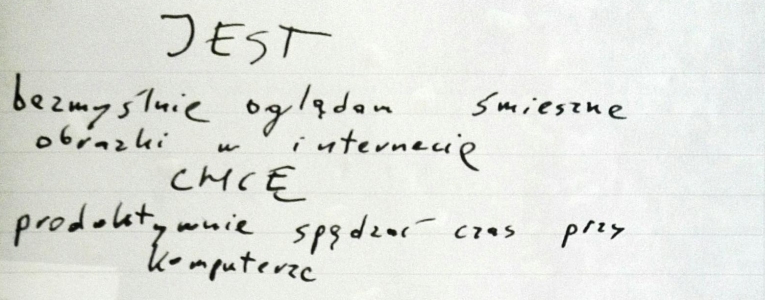 JEST
bezmyślnie oglądam śmieszne
obrazki w internecie
CHCĘ
produktywnie spędzać czas przy
komputerze